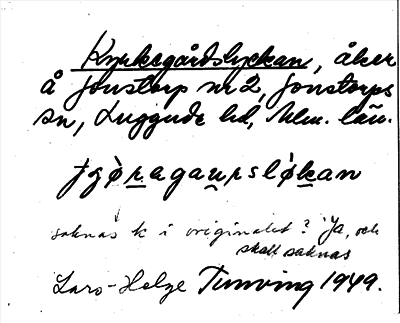 Kyrkogårdslyckan, åker
å Jonstorp nr 2, Jonstorps
sn, Luggude hd, Mlm. län.
tjø̀ragaursló̀kan
saknas k i originalet? Ja, och
skall saknas
Lars-Helge Tunving 1949.